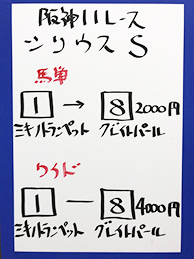 阪神11レース
シリウスS
馬単
1 → 8 2000円
ミキノトランペット グレイトパール
ワイド
1 — 8 4000円
ミキノトランペット グレイトパール